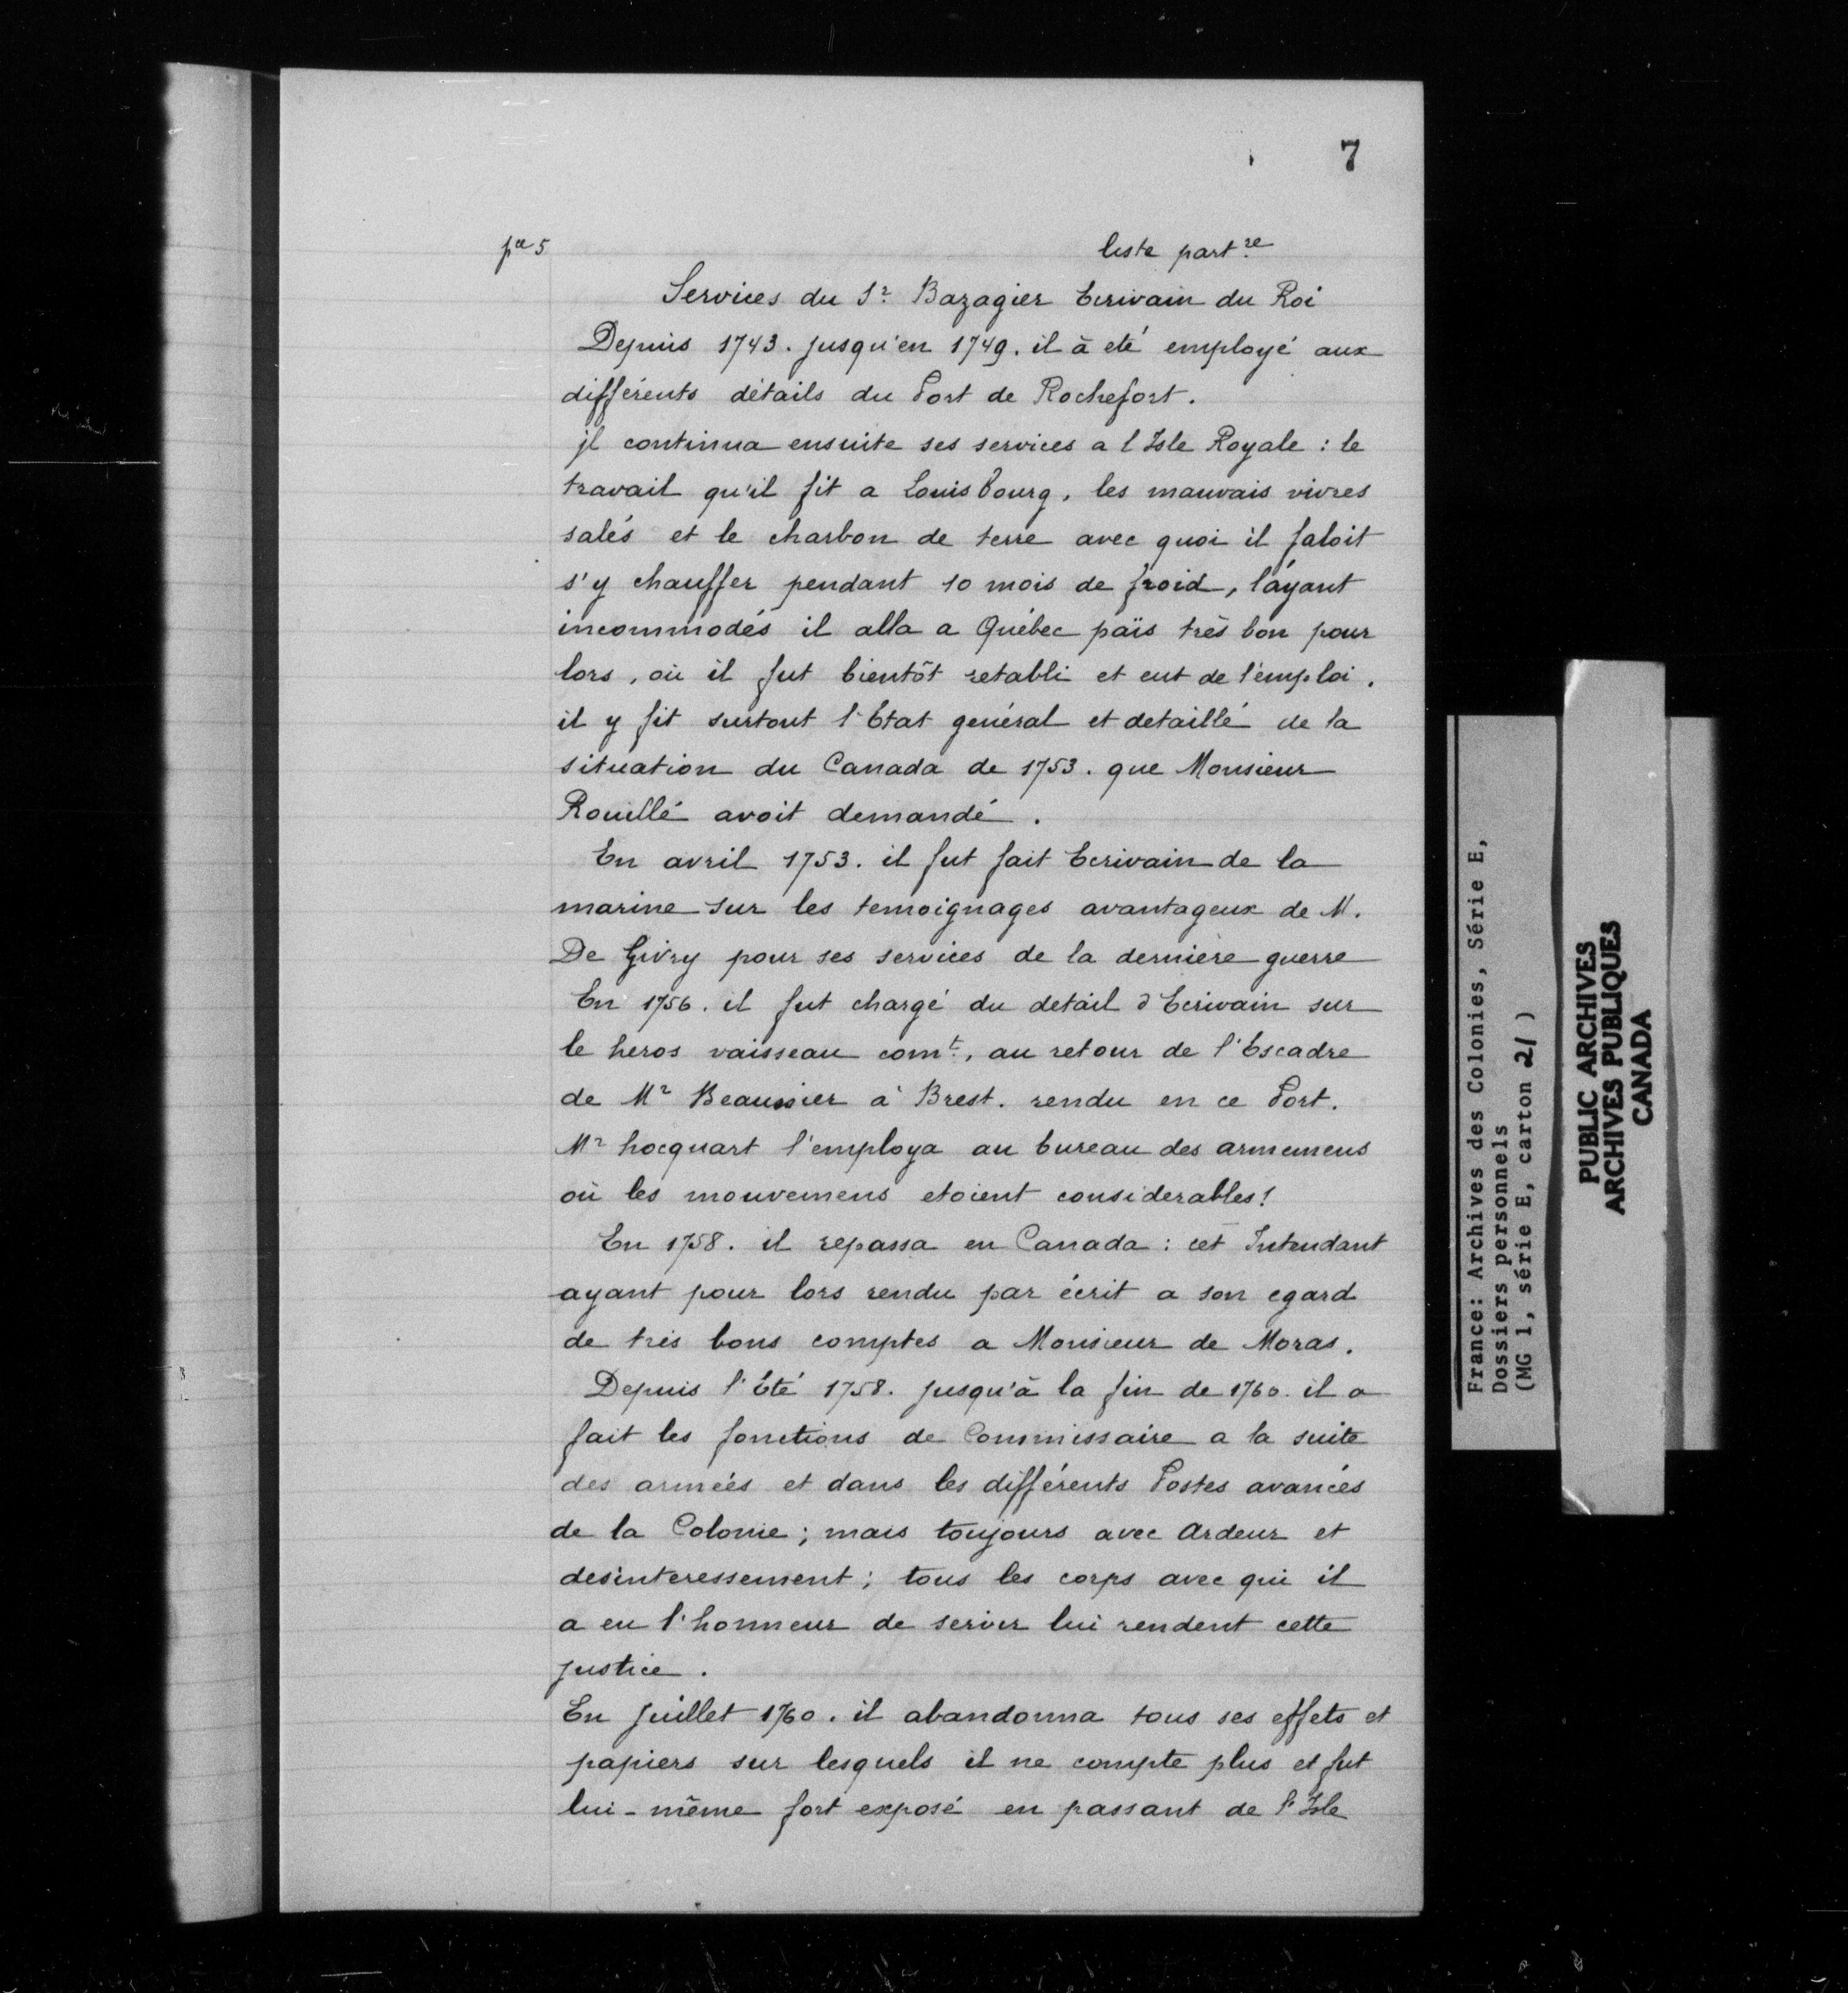 7
pce 5
liste part.re
Services du S.r Bazagier Ecrivain du Roi
Depuis 1743. jusqu'en 1749. il à eté employé aux
différents détails du Port de Rochefort.
jl continua ensuite ses services a l'Isle Royale : le
travail qu'il fit a Louisbourg, les mauvais vivres
salés et le charbon de terre avec quoi il faloit
s'y chauffer pendant 10 mois de froid, l'ayant
incommodés il alla a Québec païs très bon pour
lors, où il fut bientôt retabli et eut de l'emploi.
il y fit surtout l'Etat genéral et detaillé de la
situation du Canada de 1753. que Monsieur
Rouillé avoit demandé.
En avril 1753. il fut fait Ecrivain de la
marine sur les temoignages avantageux de M.
De Givry pour ses services de la derniere guerre
En 1756. il fut chargé du detail d'Ecrivain sur
le heros vaisseau com.t, au retour de l'Escadre
de M.r Beaussier à Brest. rendu en ce Port.
M.r hocquart l'employa au bureau des armemens
où les mouvemens etoient considerables!
En 1758. il repassa en Canada : cet Intendant
ayant pour lors rendu par écrit a son egard
de très bons comptes a Monsieur de Moras.
Depuis l'Eté 1758. jusqu'à la fin de 1760. il a
fait les fonctions de Commissaire a la suite
des armées et dans les différents Postes avancés
de la Colonie ; mais toujours avec Ardeur et
desinteressement ; tous les corps avec qui il
a eu l'honneur de servir lui rendent cette
justice.
En Juillet 1760. il abandonna tous ses effets et
papiers sur lesquels il ne compte plus et fut
lui-même fort exposé en passant de l'Isle
France: Archives des Colonies, Série E,
Dossiers personnels
(MG 1, série E, carton 21)
PUBLIC ARCHIVES
ARCHIVES PUBLIQUES
CANADA